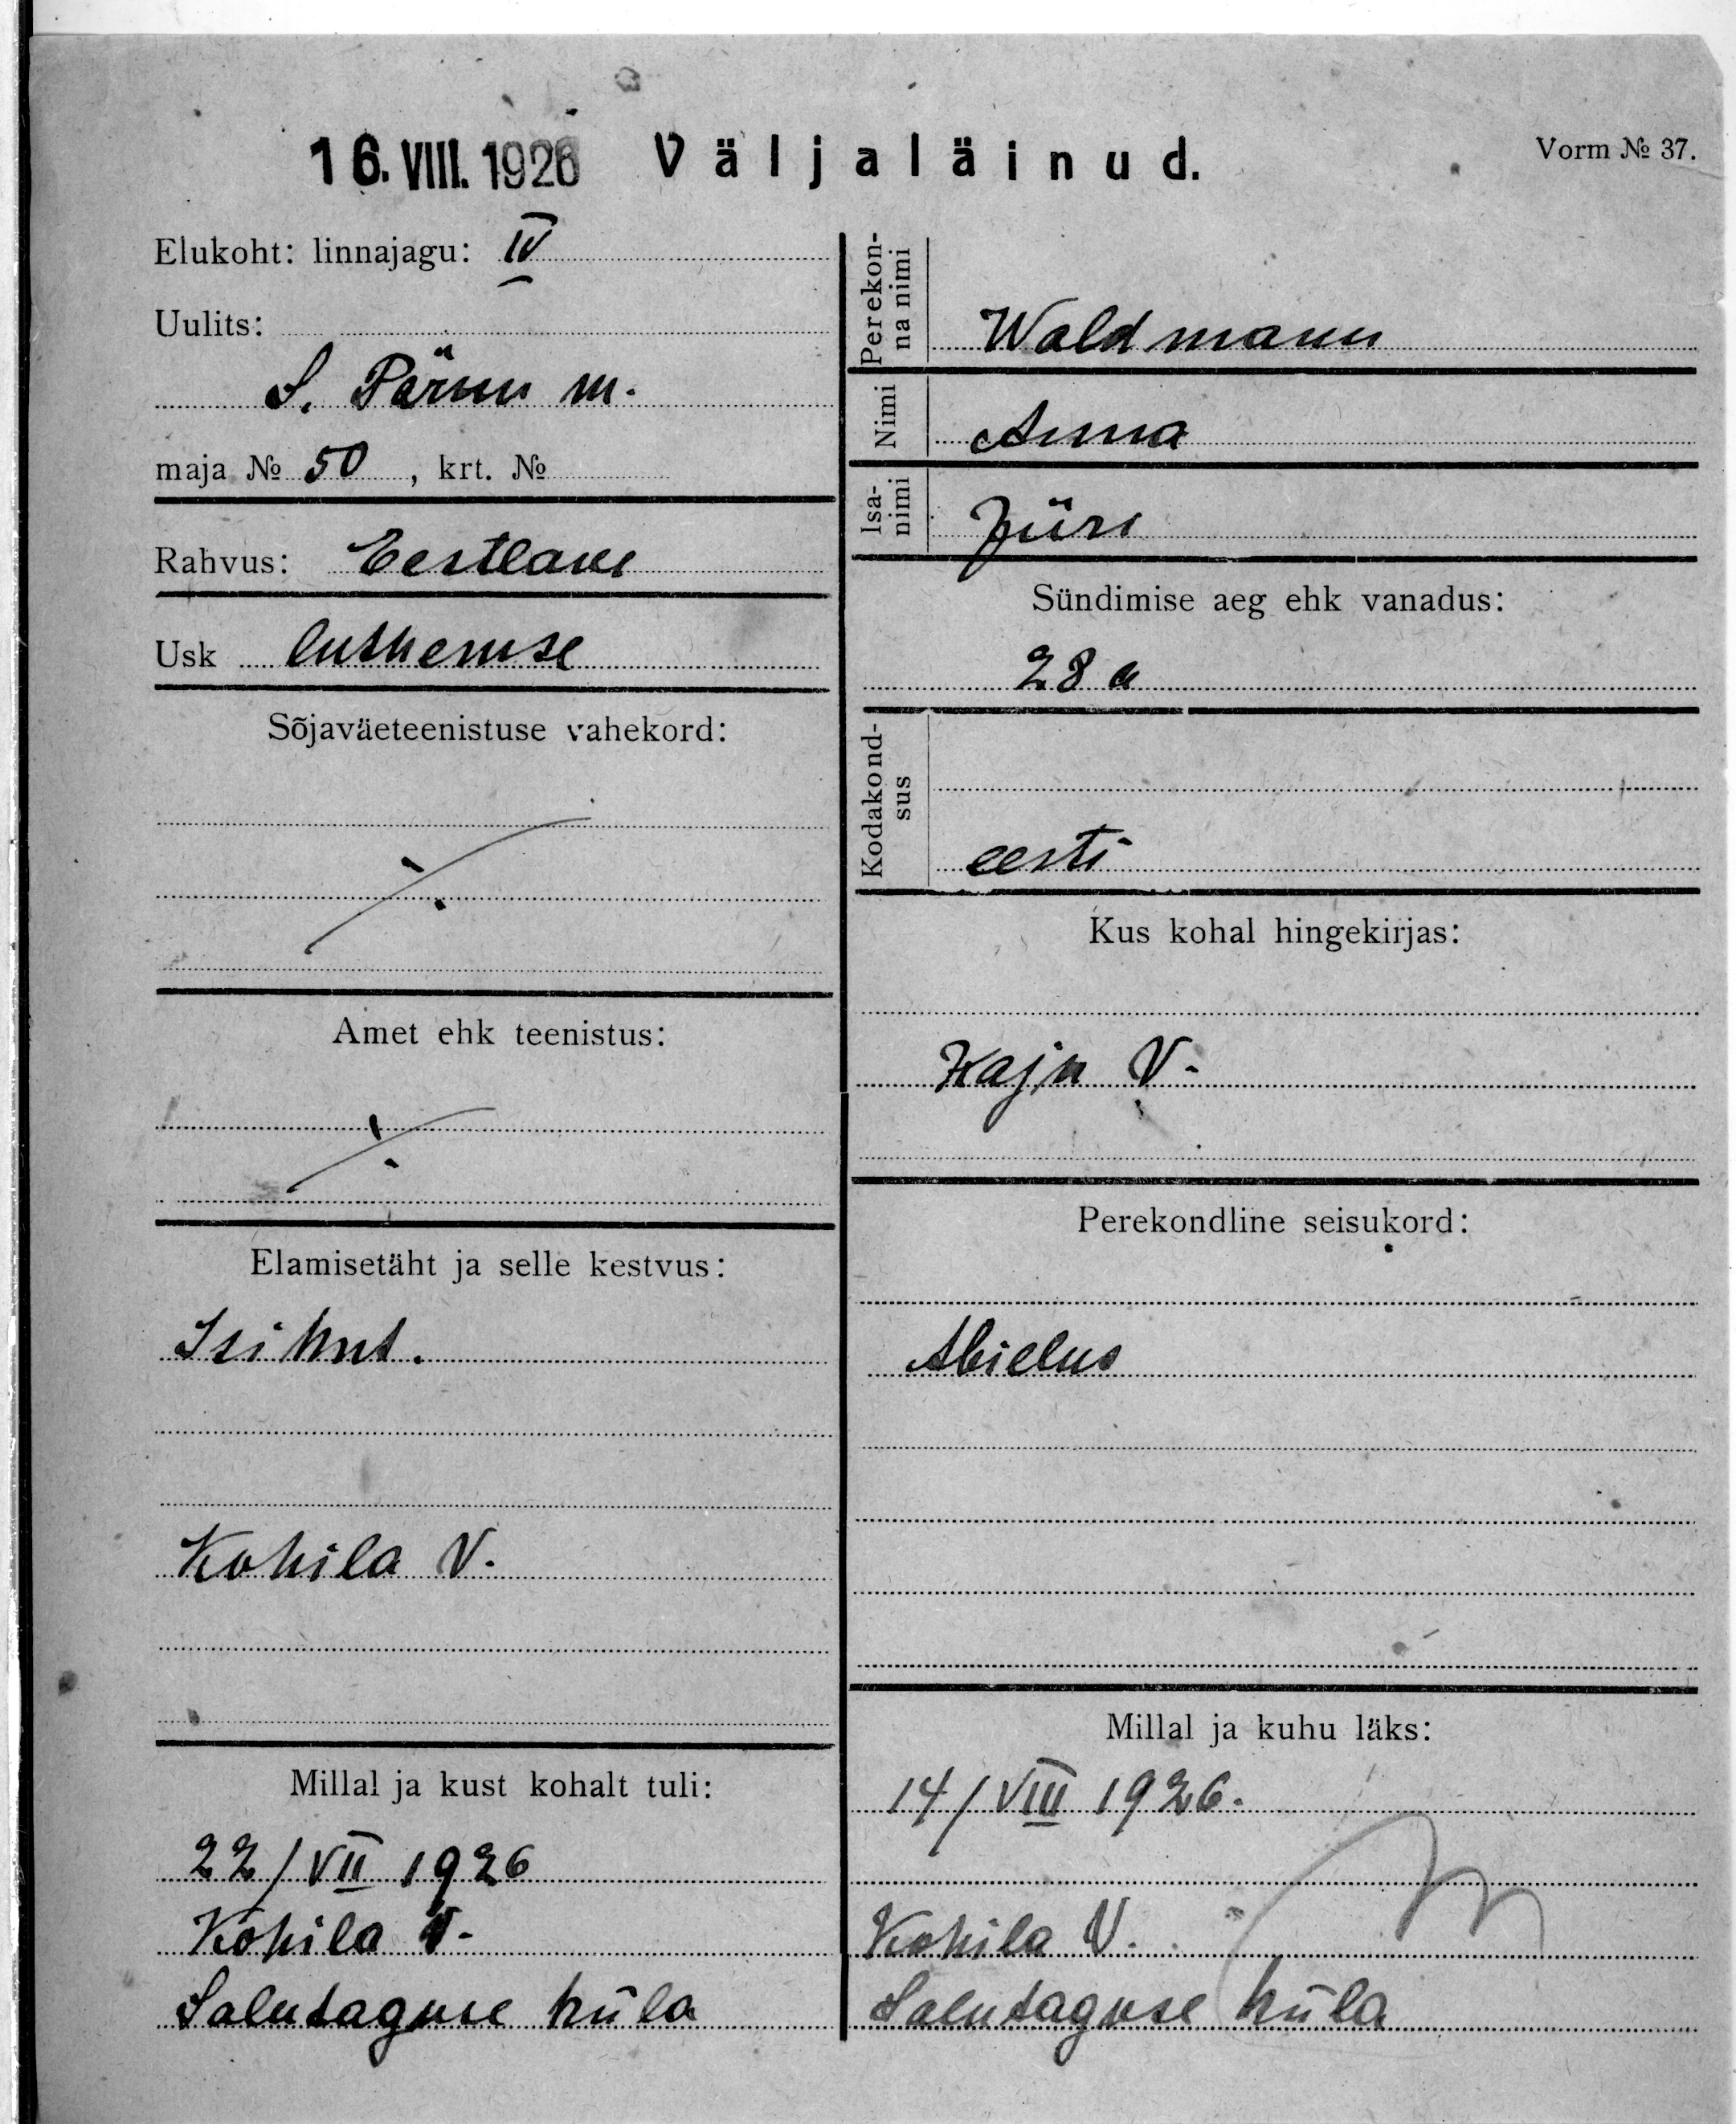 16. VIII. 1926 Väljaläinud.
Vorm № 37.
Elukoht: linnajagu: IV
Uulits:
S. Pärnu m.
maja № 50, krt. №
Rahvus: Eestlane
Usk lutheruse
Sõjaväeteenistuse vahekord:
Amet ehk teenistus:
Elamisetäht ja selle kestvus:
Isikut.
Kohila V.
Millal ja kust kohalt tuli:
22/VII 1926
Kohila V.
Salutaguse küla
Perekon-
na nimi
Waldmann
Nimi
Anna
Isa-
nimi
Jüri
Sündimise aeg ehk vanadus:
28 a
Kodakond-
sus
eesti
Kus kohal hingekirjas:
Kaju V.
Perekondline seisukord:
Abielus
Millal ja kuhu läks:
14/VIII 1926.
Kohila V.
Salutaguse küla